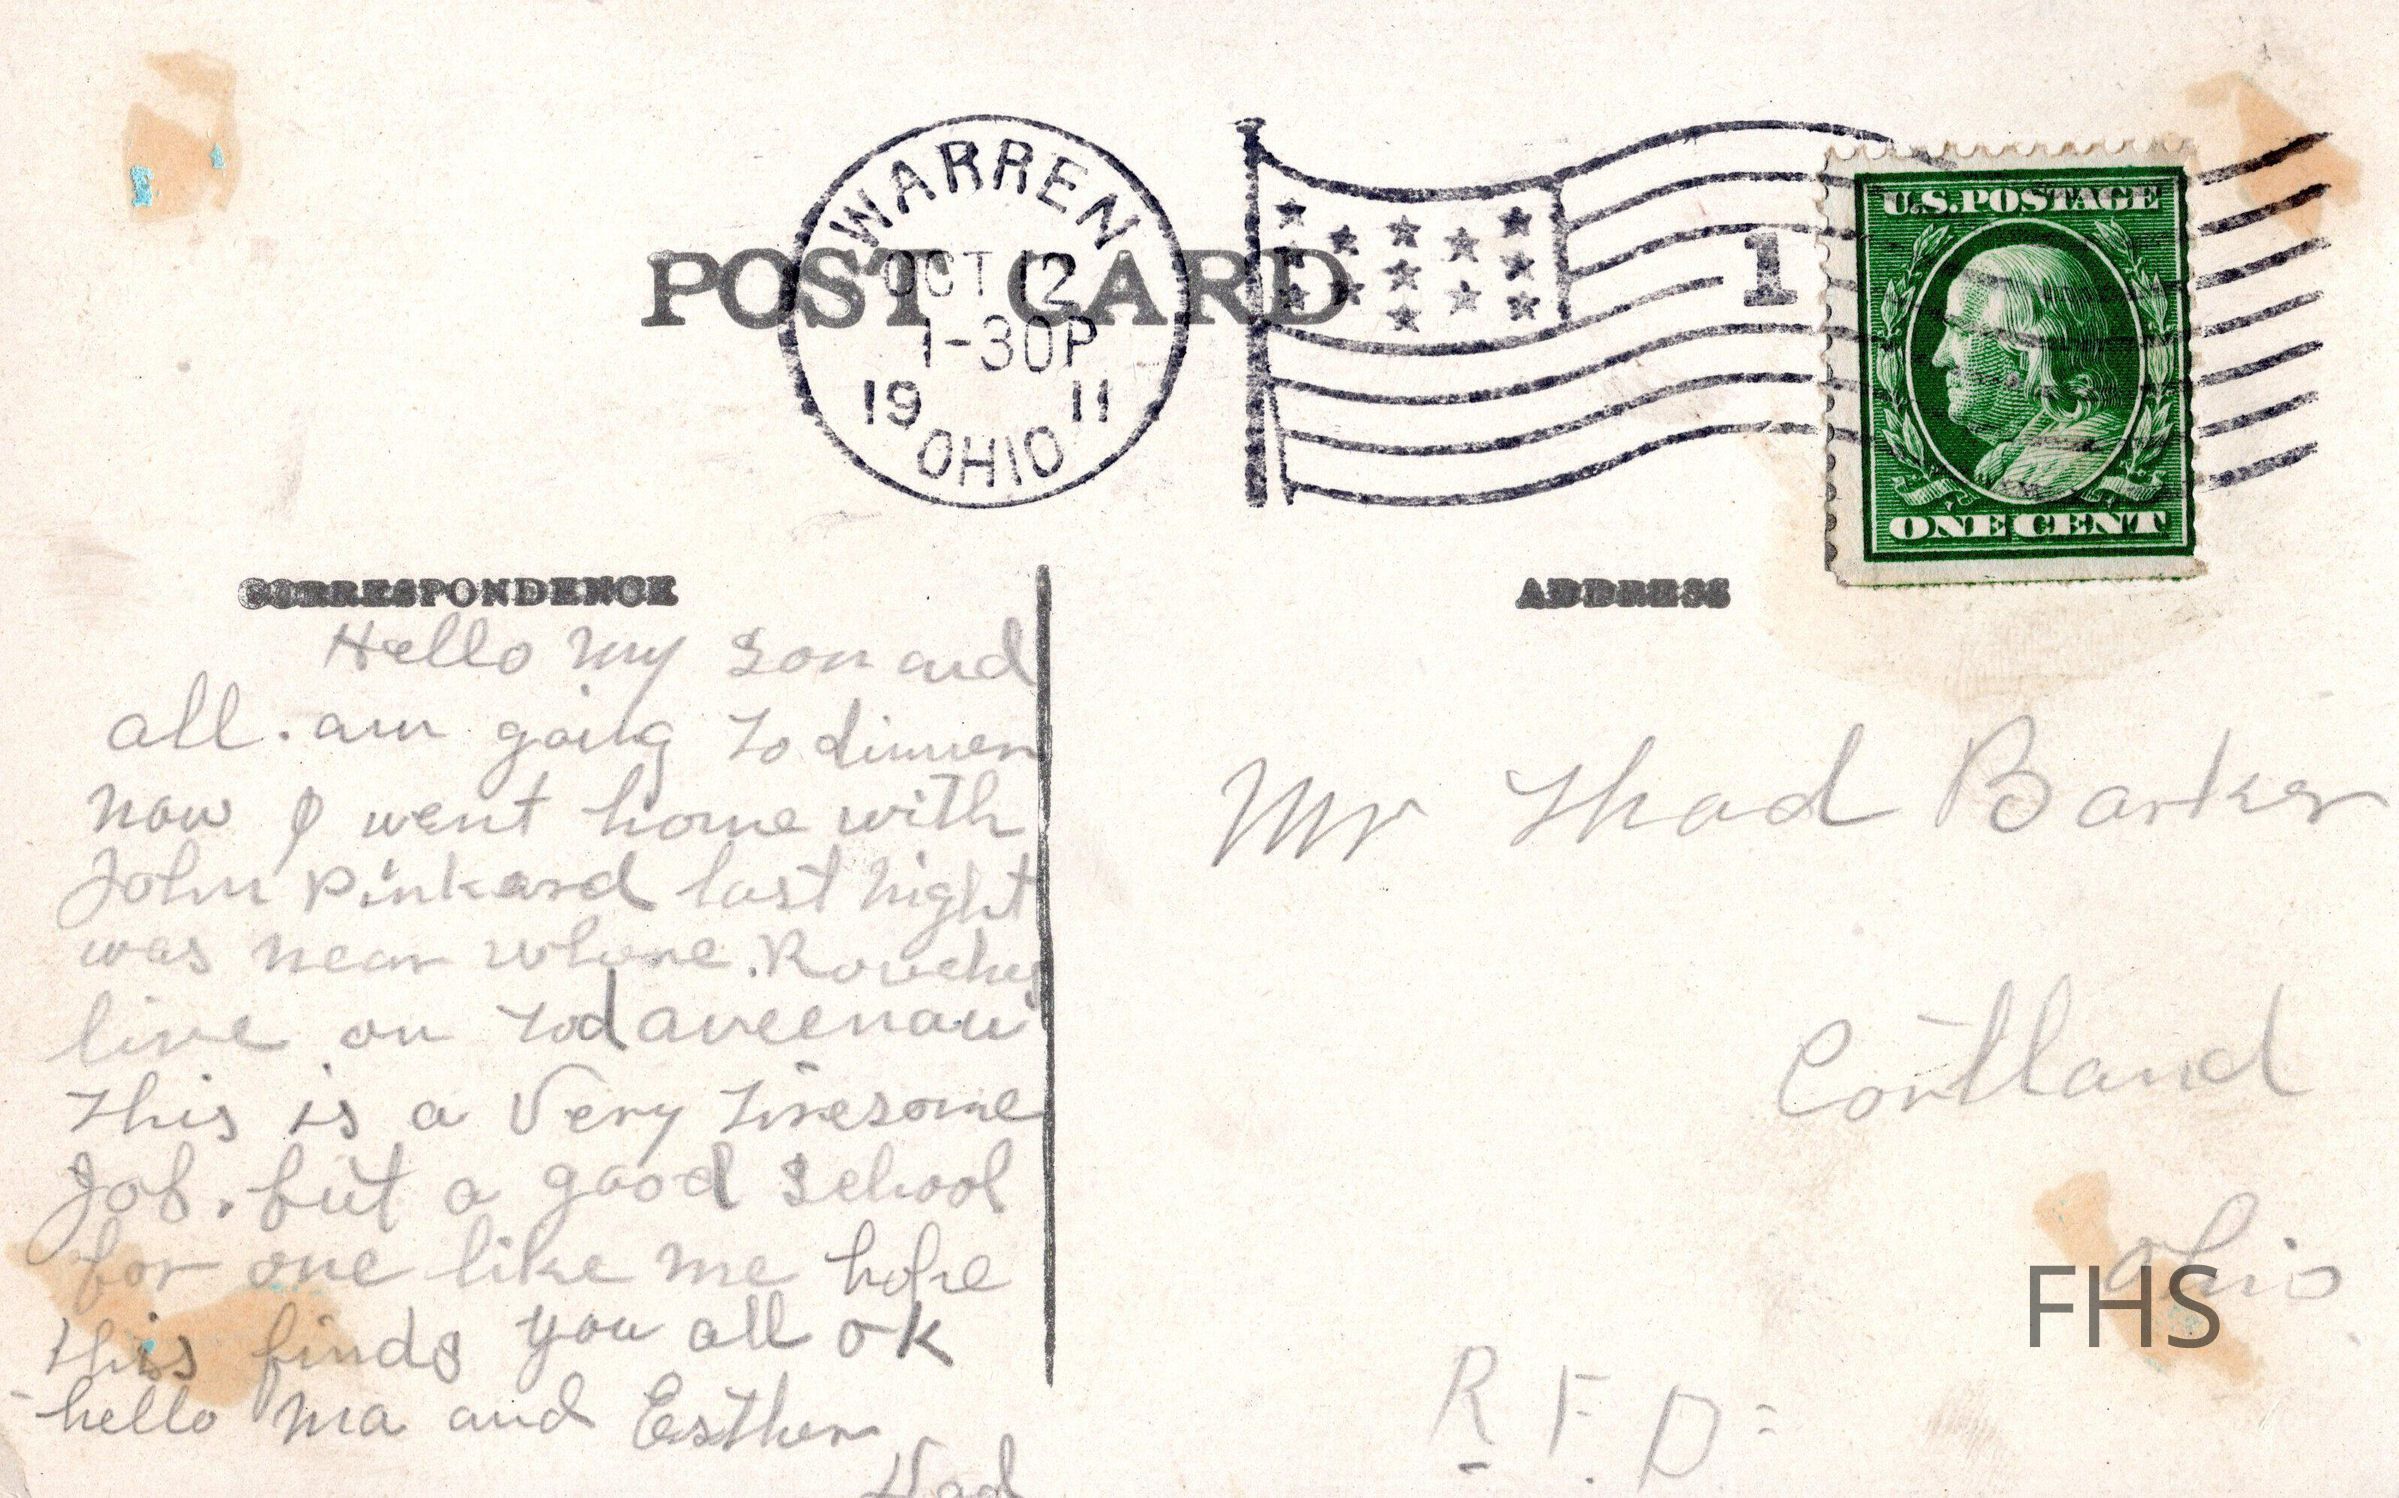 WARREN
OCT 12
1-30P
19 11
OHIO
POST CARD
1
U.S. POSTAGE
ONE CENT
CORRESPONDENCE
Hello my son and
all. am going to dinner
now I went home with
John Pinkard last night
was near where
live on Tod aveenau
this is a very tiresome
Job. but a good school
for one like me hope
this finds you all ok
-hello Ma and Esther
Dad
ADDRESS
Mr Thad Barker
Cortland
Ohio
R. F. D.
FHS